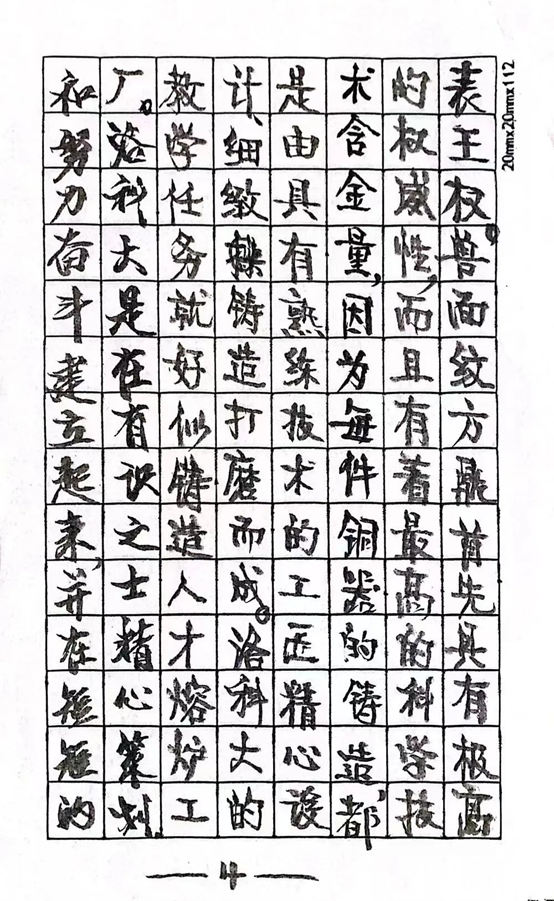 表王权。兽面纹方鼎首先具有极高
的权威性，而且有着最高的科学技
术含金量，因为每件铜器的铸造，都
是由具有熟练技术的工匠精心设
计、细致铸造打磨而成。洛科大的
教学任务就好似铸造人才熔炉工
厂。洛科大是在有识之士精心策划、
和努力奋斗建立起来，并在短短的
20mm×20mm×112
—4—